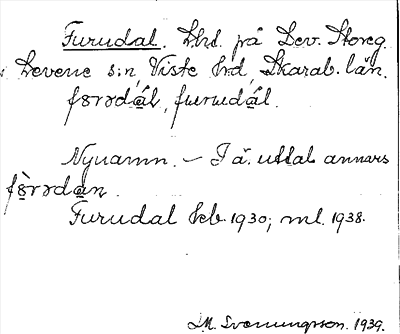 Furudal. Lhd. på Lev. Storeg.
i Levene s:n, Viste hd, Skarab. län.
fɤrɘdå̱l, fɯrɯdå̱l.
Nynamn. – I ä. uttal annars
fɤ̱̀rɘda̱n.
Furudal keb. 1930; ml. 1938.
M. Svenungsson. 1939.